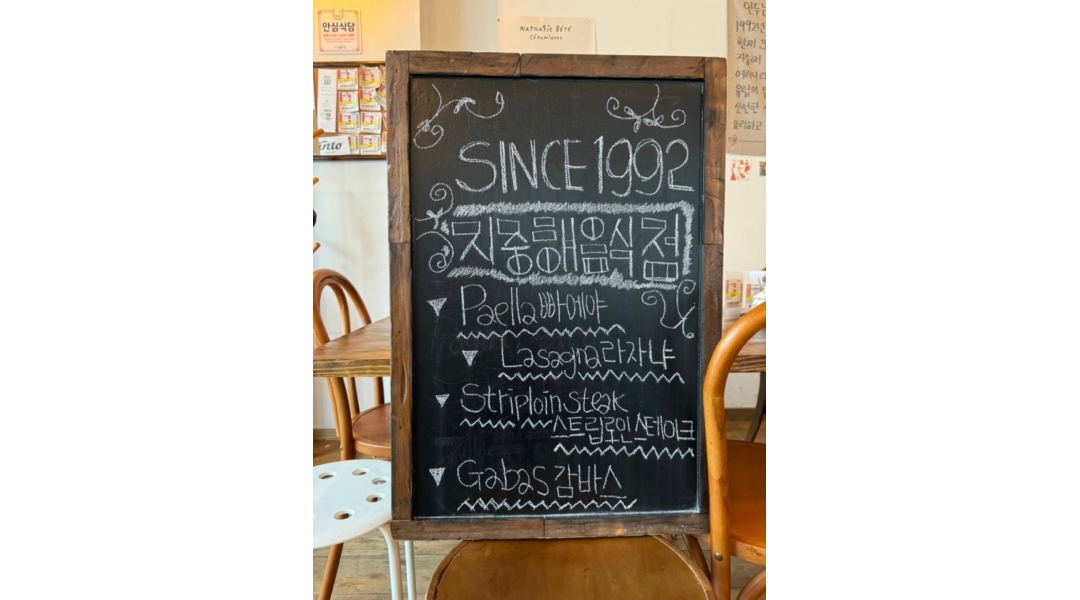 안심식당
NATHALIE LÉTÉ
CÉRAMIQUES
1992년
SINCE 1992
지중해음식점
Paella 빠에야
Lasagna 라자냐
Striploin steak
스트립로인 스테이크
Gabas 감바스